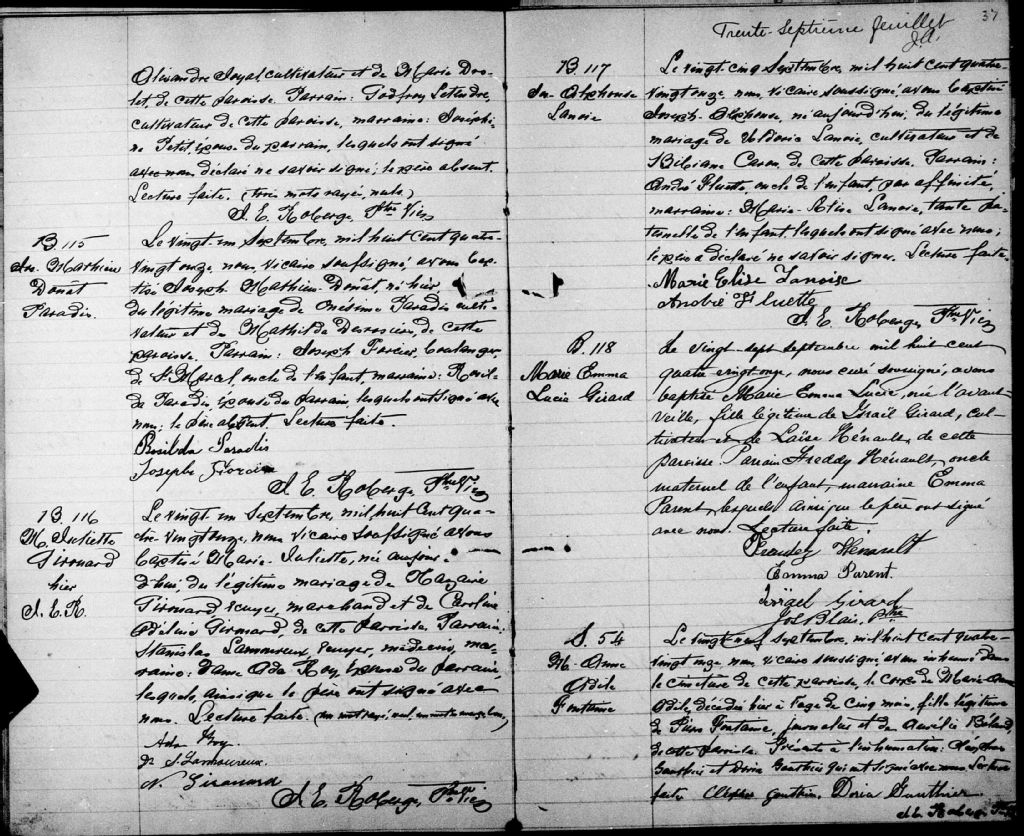 Alexandre Joyal cultivateur et de Marie Dro-
let, de cette paroisse. Parrain: Godfroy Letendre,
cultivateur de cette paroisse, marraine: Joséphi-
ne Petit, épouse du parrain, lesquels ont signé
avec nous, déclaré ne savoir signer; le père absent.
Lecture faite. (trois mots rayés nuls)
J. E. Roberge, Ptre Vic
B. 115
Jos. Mathieu
Donat
Paradis.
Le vingt-un Septembre, mil huit cent quatre-
vingt onze, nous vicaire soussigné, avons bap-
tisé Joseph Mathieu Donat, né hier
du légitime mariage de Onésime Paradis culti-
vateur et de Mathilda Desrosiers, de cette
paroisse. Parrain: Joseph Forcier, boulanger
de St Marcel, oncle de l'enfant, marraine: Rosil-
da Paradis, épouse du parrain, lesquels ont signé avec
nous; le père absent. Lecture faite.
Rosilda Paradis
Joseph Forcier
J. E. Roberge, Ptre Vic
B. 116
M. Juliette
Girouard
hier
J. E. R.
Le vingt-un Septembre, mil huit cent qua-
tre-vingt onze, nous vicaire soussigné avons
baptisé Marie-Juliette, née aujour-
d'hui, du légitime mariage de Nazaire
Girouard, écuyer, marchand et de Caroline
Adeline Girouard, de cette paroisse. Parrain:
Stanislas Lamoureux, écuyer, médecin, mar-
raine: Dame Ada Roy, épouse du parrain,
lesquels, ainsi que le père ont signé avec
nous. Lecture faite. (un mot rayé, nul, un mot en marge bon)
Ada Roy.
Dr S. Lamoureux
N. Girouard
J. E. Roberge, Ptre Vic
37
Trente-septième feuillet
J.A.
B. 117
Jos-Alphonse
Lanoie
Le vingt-cinq Septembre, mil huit cent quatre-
vingt onze, nous vicaire soussigné, avons baptisé
Joseph-Alphonse, né aujourd'hui, du légitime
mariage de Uldoric Lanoie, cultivateur et de
Bibiane Caron, de cette paroisse. Parrain:
André Fluette, oncle de l'enfant, par affinité,
marraine: Marie-Elise Lanoie, tante pa-
ternelle de l'enfant, lesquels ont signé avec nous;
le père a déclaré ne savoir signer. Lecture faite.
Marie Elise Lanoise
André Fluette
J. E. Roberge, Ptre Vic
B. 118
Marie Emma
Lucia Girard
Le vingt-sept septembre mil huit cent
quatre vingt onze, nous curé soussigné, avons
baptisé Marie Emma Lucie, née l'avant-
veille, fille légitime de Israël Girard, cul-
tivateur et de Laïse Hénault, de cette
paroisse Parrain Freddy Hénault, oncle
maternel de l'enfant, marraine Emma
Parent, lesquels ainsi que le père ont signé
avec nous. Lecture faite.
Freudy Henault
Emma Parent.
Israel Girard
Jos Blais, Ptre
S. 54
M-Anne
Odile
Fontaine
Le vingt-neuf Septembre, mil huit cent quatre-
vingt onze, nous vicaire soussigné avons inhumé dans
le cimetière de cette paroisse, le corps de Marie-Anne
Odile, décédée hier à l'âge de cinq mois, fille légitime
de Pierre Fontaine, journalier et de Aurélie Béland,
de cette paroisse. Présents à l'inhumation: Cléophas
Gauthier et Doria Gauthier qui ont signé avec nous. Lecture
faite Cléophas Gauthier. Doria Gauthier
J. E. Roberge Ptre